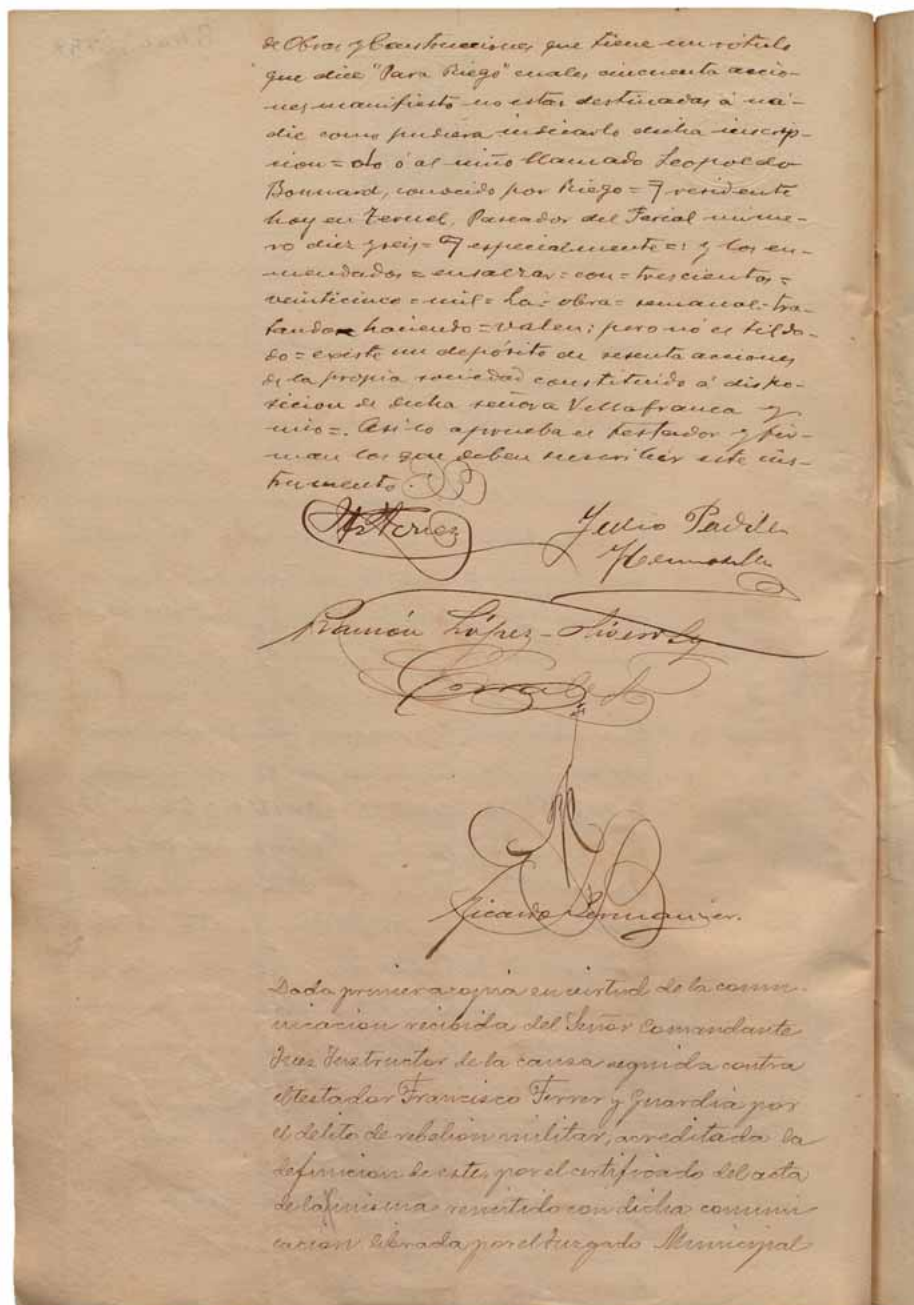 de Obras y Construcciones que tiene un rótulo
que dice "Para Riego" cuales cincuenta accio-
nes manifiesto no estar destinadas á na-
die como pudiera indicarlo dicha inscrip-
cion = ó al niño llamado Leopoldo
Bonnard, conocido por Riego = y residente
hoy en Teruel, Paseador del Ferial núme-
ro diez y seis = y especialmente =: y los en-
mendados = ensalzar = con = trescientos =
veinticinco = mil = La = obra = semanal = tra-
tando haciendo = valen; pero nó el tilda-
do = existe un depósito de sesenta acciones
de la propia sociedad constituido á dispo-
sicion de dicha señora Villafranca y
mio =. Asi lo aprueba el testador y fir-
man los que deben suscribir este ins-
trumento.
Julio Padilla
Hermosilla
Ramón López
Corrales
Ricardo Permanyer.
Dada primera copia en virtud de la comu-
nicacion recibida del Señor Comandante
Juez Instructor de la causa seguida contra
el testador Francisco Ferrer y Guardia por
el delito de rebelion militar, acreditada la
defuncion de este, por el certificado del acta
de la misma remitido con dicha comuni
cacion librada por el Juzgado Municipal